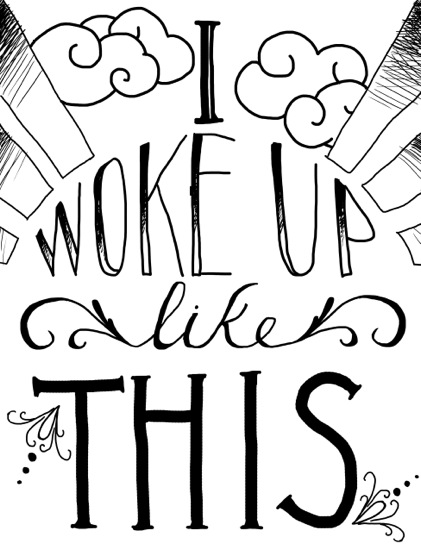 I
WOKE UP
like
THIS